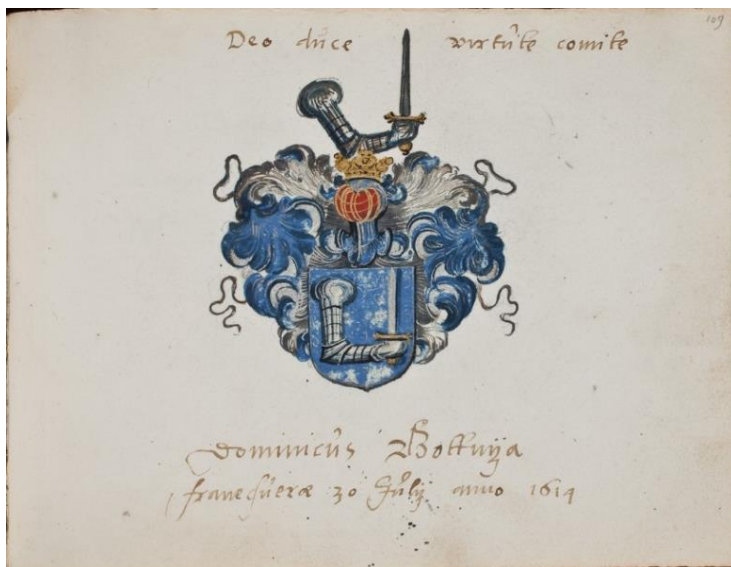 109
Deo duce virtûte comite
Dominicûs Bottnya
franeqûeræ 30 Jûlÿ anno 1614